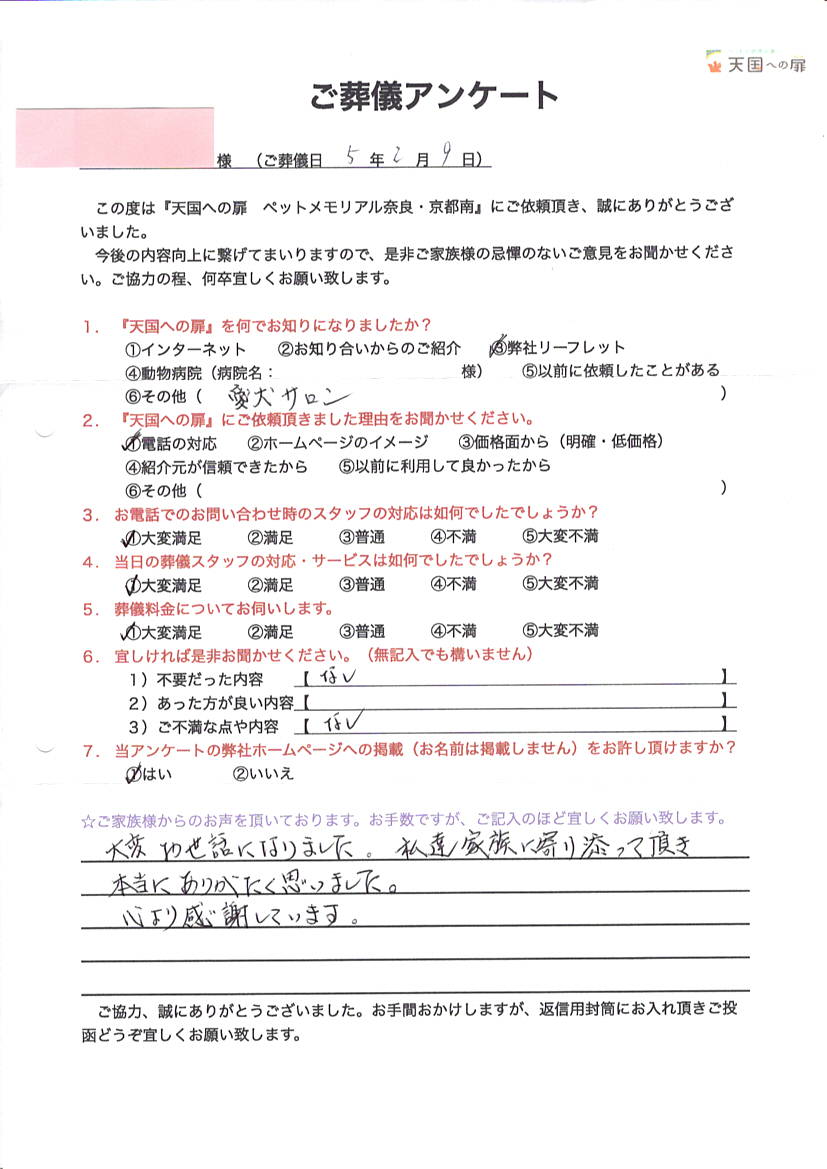 天国への扉
ご葬儀アンケート
様 （ご葬儀日 5 年 2 月 9 日）
この度は『天国への扉 ペットメモリアル奈良・京都南』にご依頼頂き、誠にありがとうござ
いました。
今後の内容向上に繋げてまいりますので、是非ご家族様の忌憚のないご意見をお聞かせくださ
い。ご協力の程、何卒宜しくお願い致します。
1．『天国への扉』を何でお知りになりましたか？
①インターネット ②お知り合いからのご紹介 ③弊社リーフレット
④動物病院（病院名： 様） ⑤以前に依頼したことがある
⑥その他（ 愛犬サロン ）
2．『天国への扉』にご依頼頂きました理由をお聞かせください。
①電話の対応 ②ホームページのイメージ ③価格面から（明確・低価格）
④紹介元が信頼できたから ⑤以前に利用して良かったから
⑥その他（ ）
3．お電話でのお問い合わせ時のスタッフの対応は如何でしたでしょうか？
①大変満足 ②満足 ③普通 ④不満 ⑤大変不満
4．当日の葬儀スタッフの対応・サービスは如何でしたでしょうか？
①大変満足 ②満足 ③普通 ④不満 ⑤大変不満
5．葬儀料金についてお伺いします。
①大変満足 ②満足 ③普通 ④不満 ⑤大変不満
6．宜しければ是非お聞かせください。（無記入でも構いません）
1）不要だった内容 【 なし 】
2）あった方が良い内容【 】
3）ご不満な点や内容 【 なし 】
7．当アンケートの弊社ホームページへの掲載（お名前は掲載しません）をお許し頂けますか？
①はい ②いいえ
☆ご家族様からのお声を頂いております。お手数ですが、ご記入のほど宜しくお願い致します。
大変お世話になりました。私達家族に寄り添って頂き
本当にありがたく思いました。
心より感謝しています。
ご協力、誠にありがとうございました。お手間おかけしますが、返信用封筒にお入れ頂きご投
函どうぞ宜しくお願い致します。